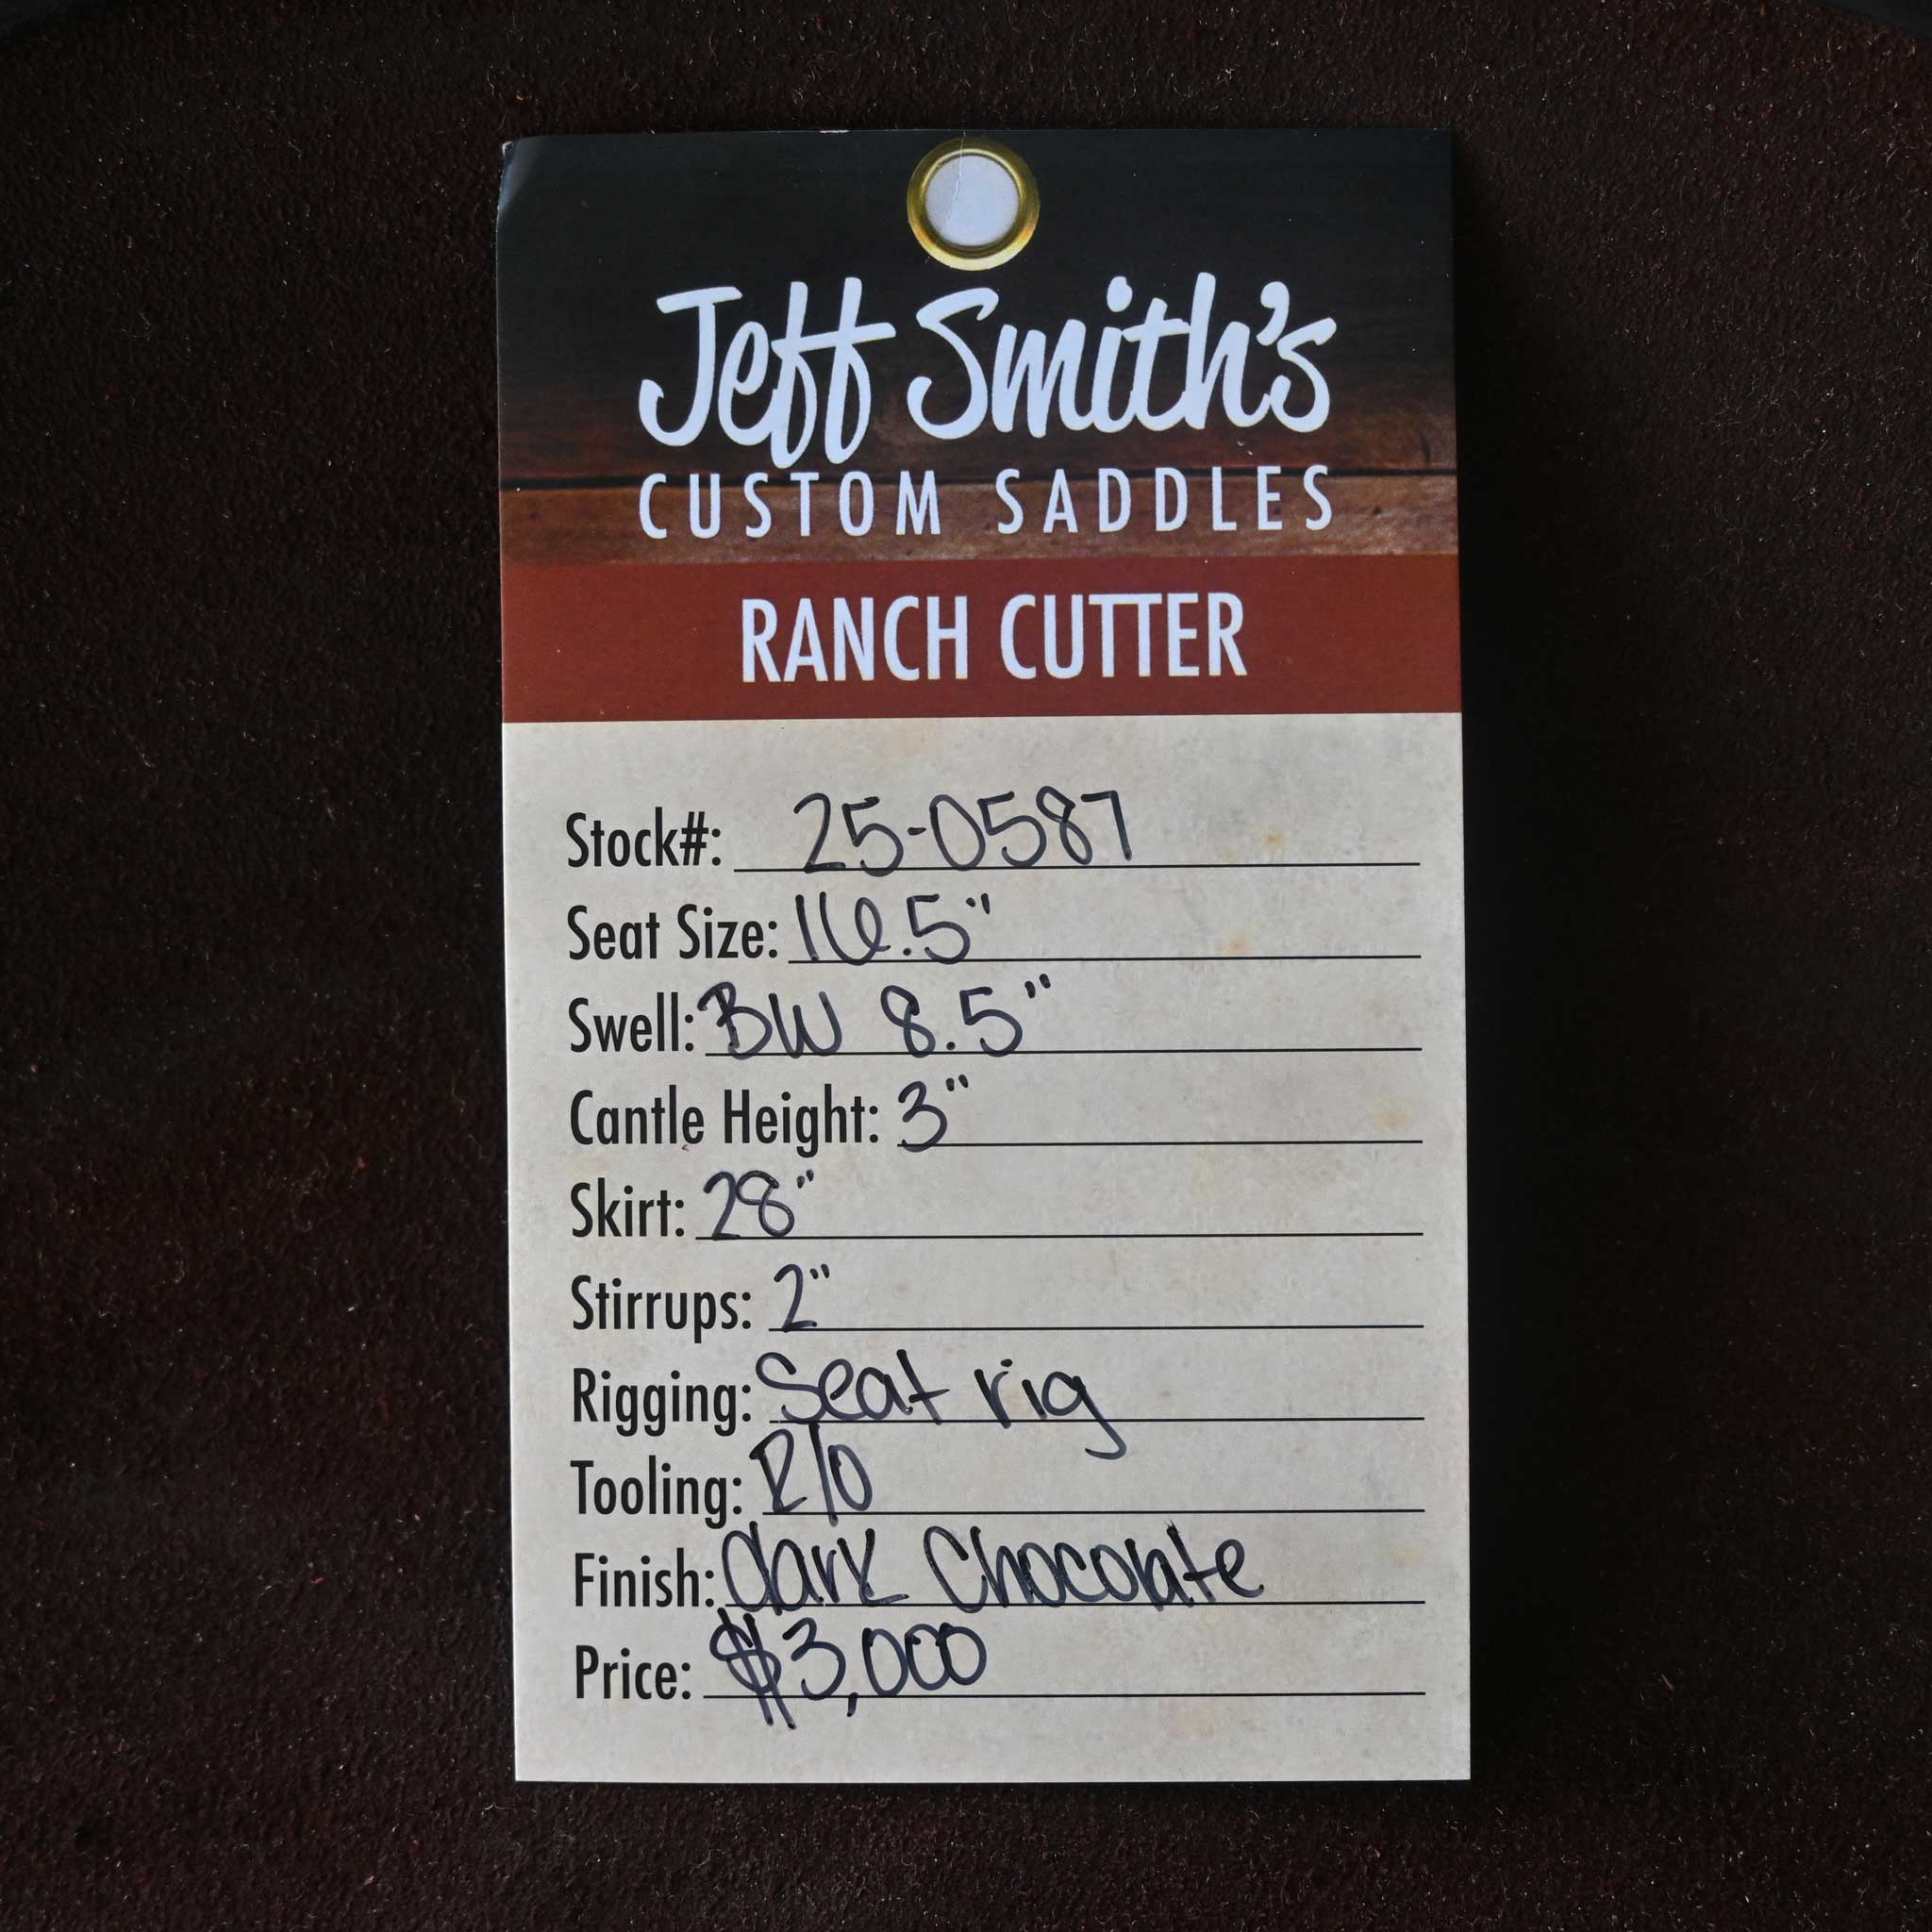 Jeff Smith's
CUSTOM SADDLES
RANCH CUTTER
Stock#: 25-0587
Seat Size: 16.5"
Swell: BW 8.5"
Cantle Height: 3"
Skirt: 28"
Stirrups: 2"
Rigging: Seat rig
Tooling: R/O
Finish: dark Chocolate
Price: $3,000